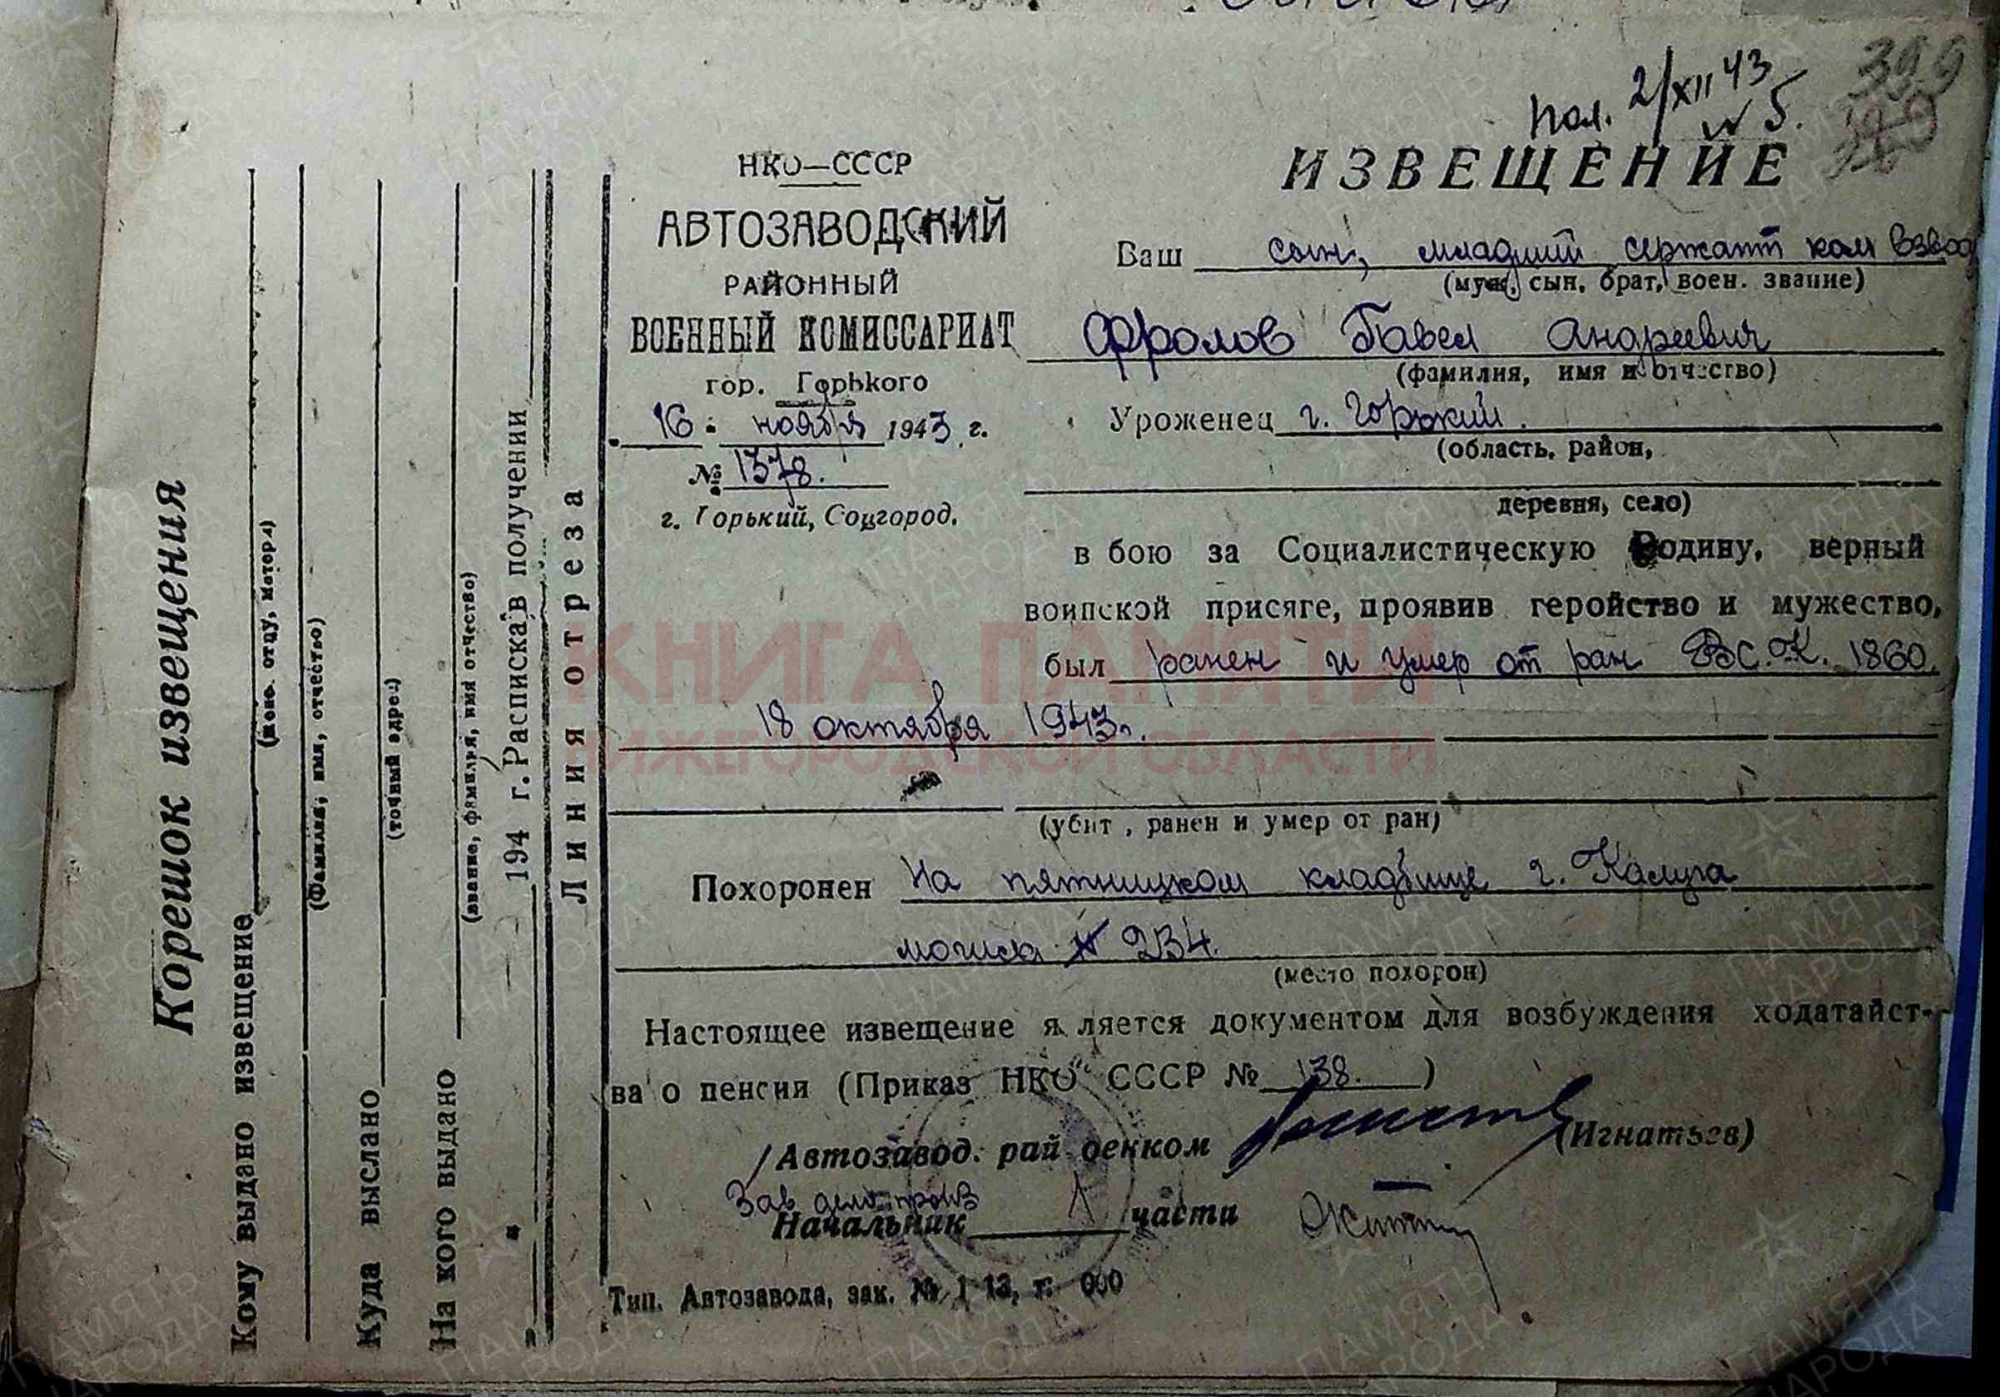 Пол. 2/XII 43
№ 5.
399
ИЗВЕЩЕНИЕ
НКО—СССР
АВТОЗАВОДСКИЙ
РАЙОННЫЙ
ВОЕННЫЙ КОМИССАРИАТ
гор. Горького
16 ноября 1943 г.
№ 1378.
г. Горький, Соцгород.
Ваш сын, младший сержант ком взвод
(муж, сын, брат, воен. звание)
Фролов Павел Андреевич
(фамилия, имя и отчество)
Уроженец г. Горький.
(область, район,
деревня, село)
в бою за Социалистическую Родину, верный
воинской присяге, проявив геройство и мужество,
был ранен и умер от ран В С.К. 1860.
18 октября 1943г.
(убит, ранен и умер от ран)
Похоронен На пятницком кладбище г. Калуга
могила № 234.
(место похорон)
Настоящее извещение является документом для возбуждения ходатайст-
ва о пенсии (Приказ НКО СССР № 138. )
Автозавод. рай оенком (Игнатьев)
Зав делопроиз
Начальник 1 части
Тип. Автозавода, зак. №
Линия отреза
Корешок извещения
Кому выдано извещение
(жене, отцу, матери)
(Фамилия, имя, отчество)
Куда выслано
(точный адрес)
На кого выдано
(звание, фамилия, имя отчество)
194 г. Расписка в получении
КНИГА ПАМЯТИ
НИЖЕГОРОДСКОЙ ОБЛАСТИ
ПАМЯТЬ НАРОДА